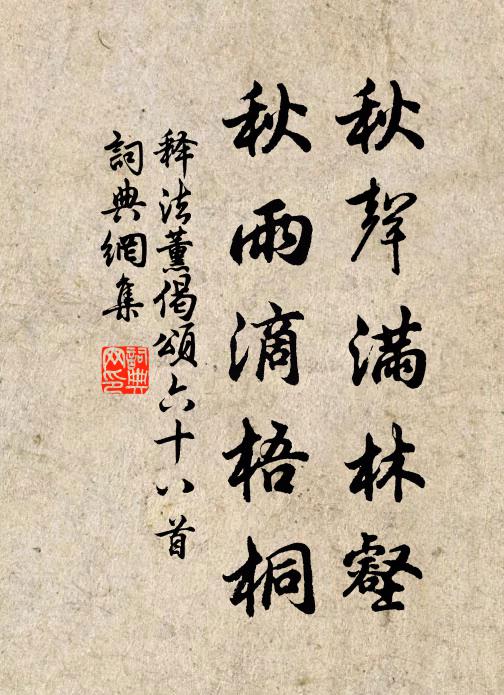 秋聲满林壑
秋雨滴梧桐
释法薰偈頌六十八首
詞典網集
詞典网印